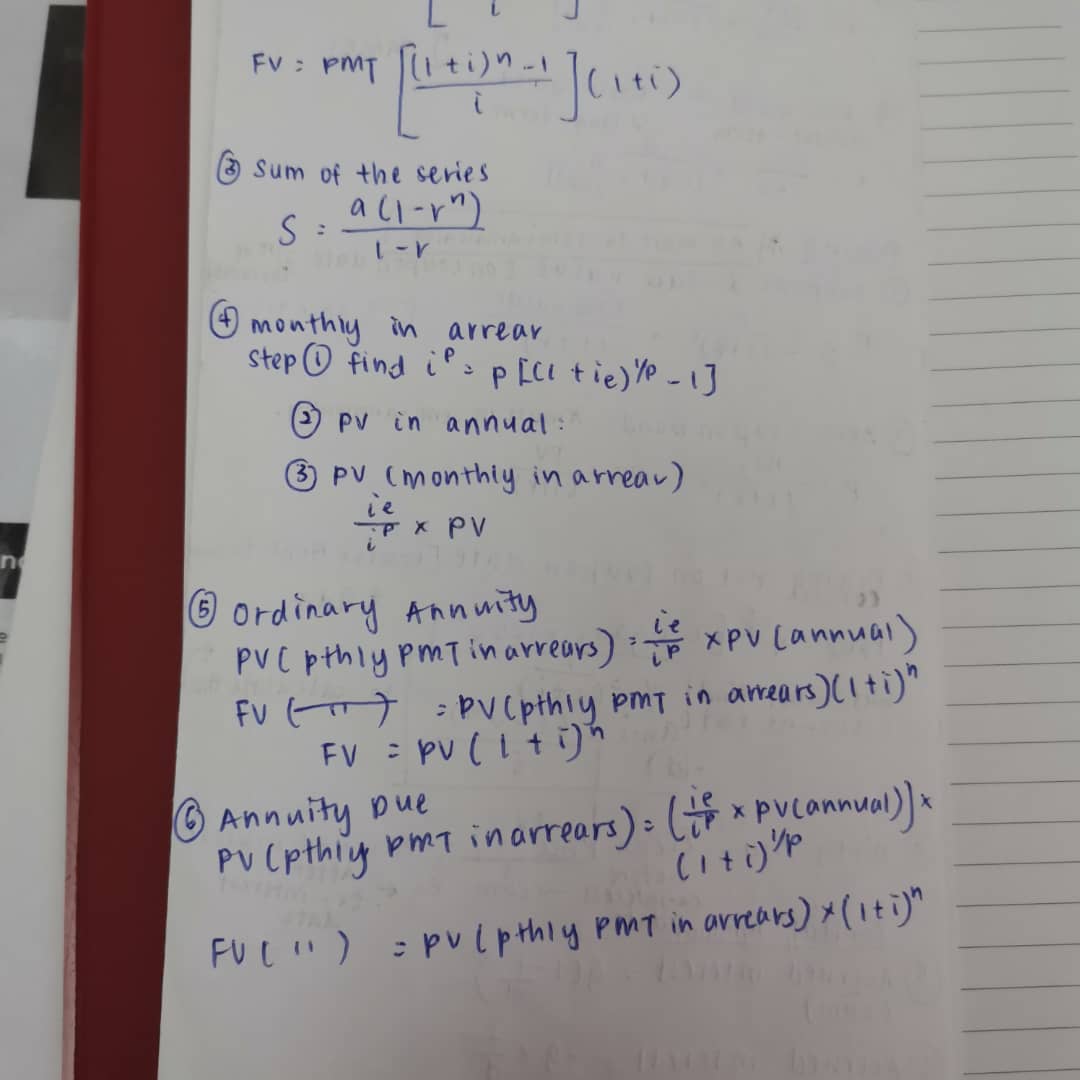 FV = PMT [(1+i)n -1 / i] (1+i)
③ Sum of the series
S = a(1-rⁿ) / 1-r
④ monthly in arrear
step ① find iᵖ = p[(1+ie)^1/p -1]
② PV in annual:
③ PV (monthly in arrear)
ie/iᵖ × PV
⑤ Ordinary Annuity
PV (pthly PMT in arrears) = ie/iᵖ × PV (annual)
FV (—"—) = PV (pthly PMT in arrears)(1+i)ⁿ
FV = PV (1+i)ⁿ
⑥ Annuity Due
PV (pthly PMT in arrears) = (ie/iᵖ × PV(annual)] ×
(1+i)^1/p
FV (") = PV (pthly PMT in arrears) × (1+i)ⁿ